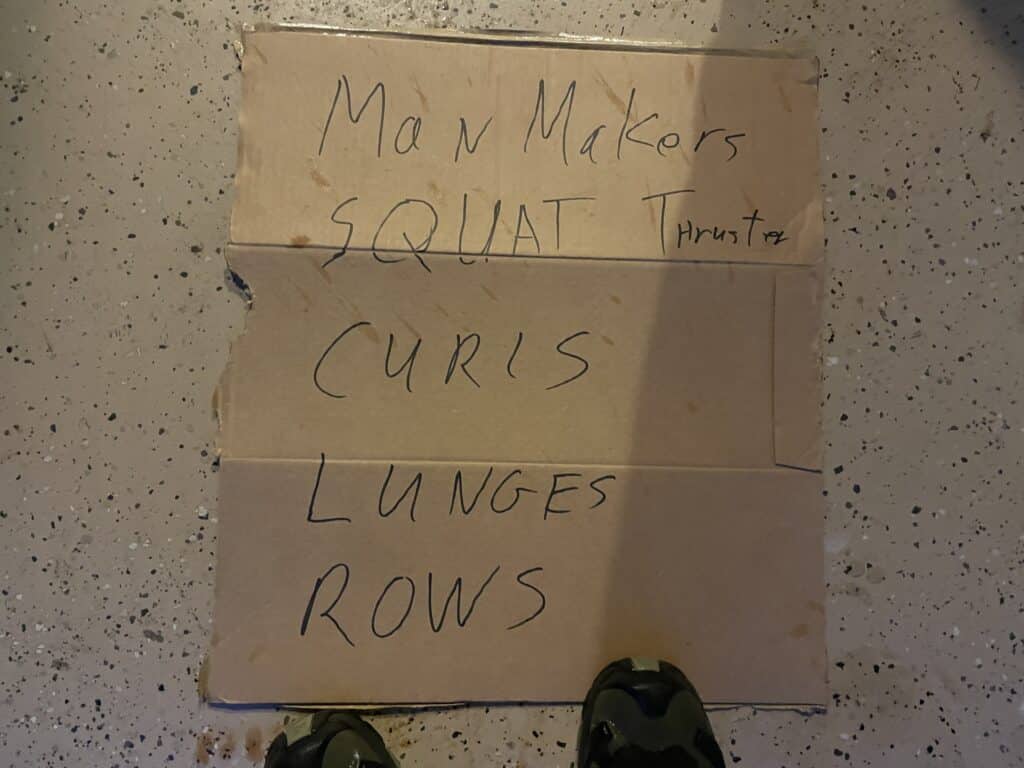 Man Makers
SQUAT Thruster
CURLS
LUNGES
ROWS